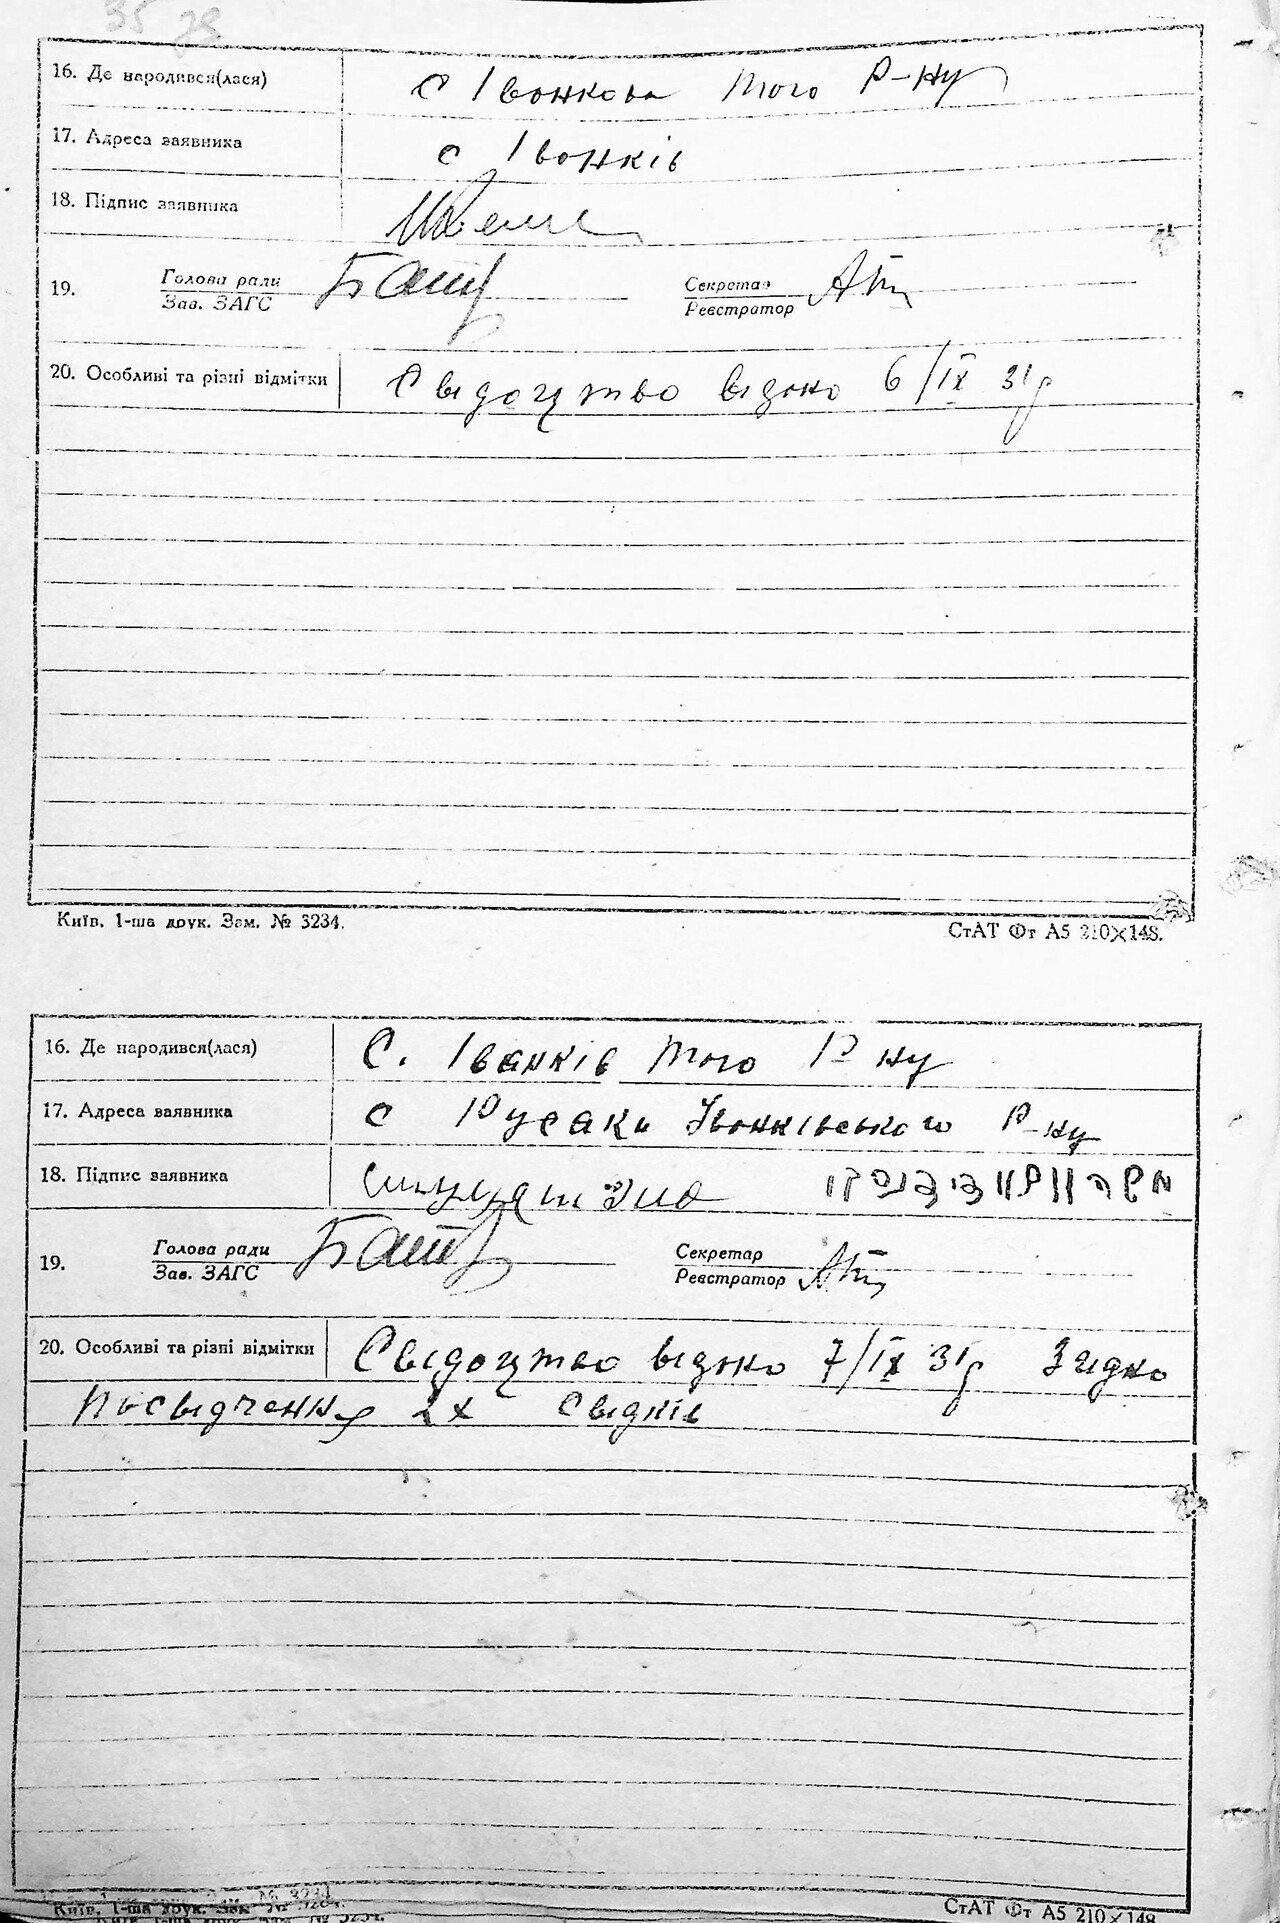 35 28
16. Де народився(лася) с Іванкова того р-ну
17. Адреса заявника с Іванків
18. Підпис заявника
19. Голова ради Секретар
Зав. ЗАГС Реєстратор
20. Особливі та різні відмітки Свідоцтво відано 6/IX 31р
Київ. 1-ша друк. Зам. № 3234.
СтАТ Фт А5 210×148.
16. Де народився(лася) С. Іванків того р ну
17. Адреса заявника с Русаки Іванківського р-ну
18. Підпис заявника
19. Голова ради Секретар
Зав. ЗАГС Реєстратор
20. Особливі та різні відмітки Свідоцтво відано 7/IX 31р Згідно
посвідчення 2х свідків
Київ. 1-ша друк. Зам. № 3234.
СтАТ Фт А5 210×148